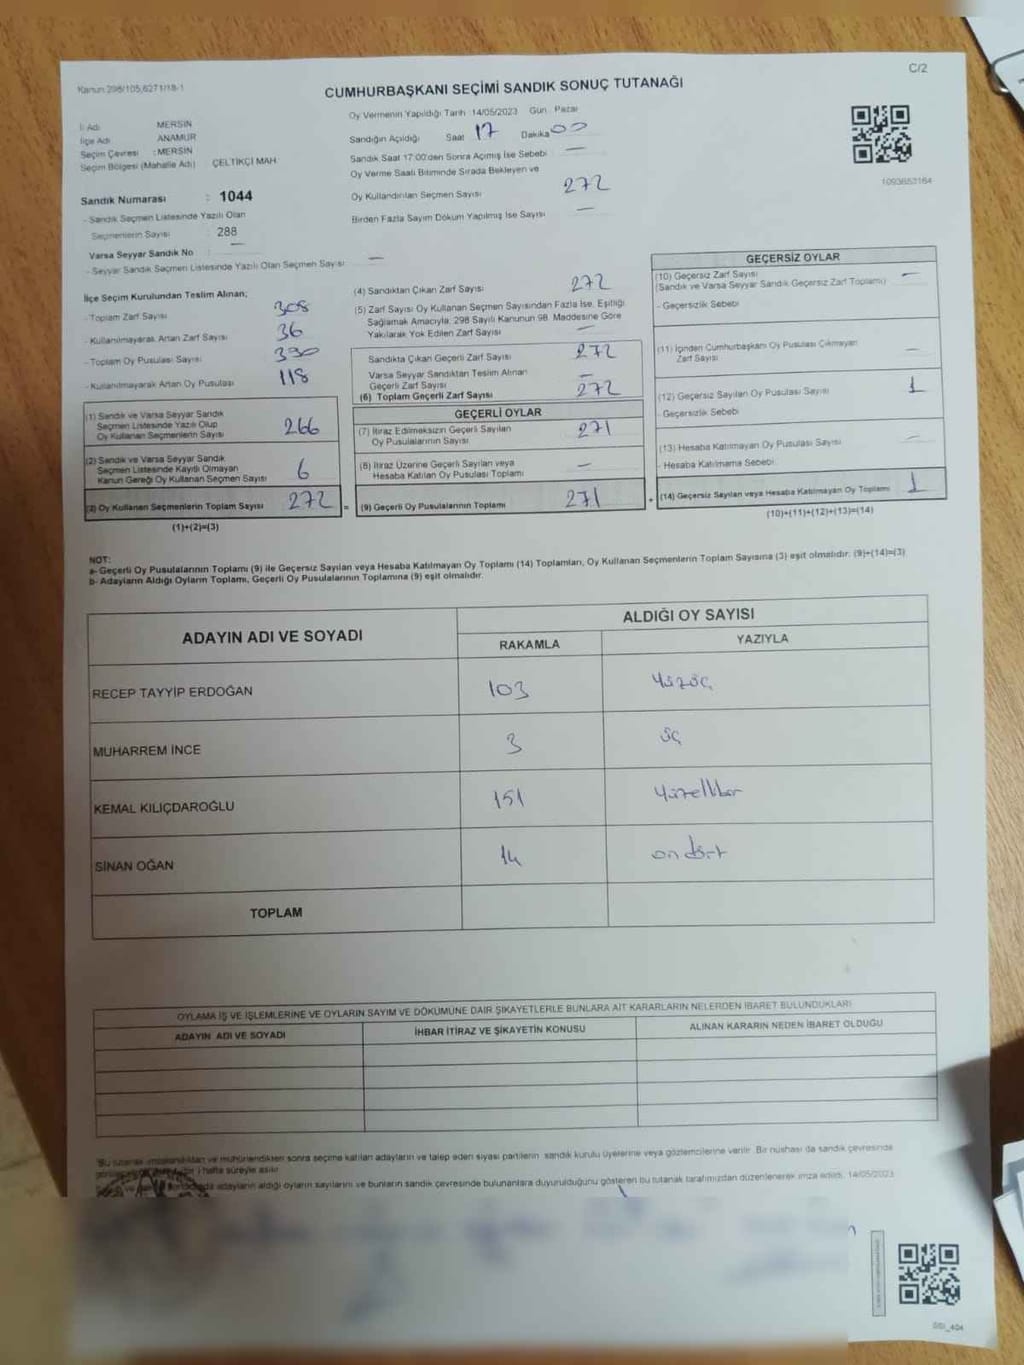 C/2
Kanun 298/105,6271/18-1
CUMHURBAŞKANI SEÇİMİ SANDIK SONUÇ TUTANAĞI
İl Adı MERSİN
İlçe Adı ANAMUR
Seçim Çevresi : MERSİN
Seçim Bölgesi (Mahalle Adı) ÇELTİKÇİ MAH.
Oy Vermenin Yapıldığı Tarih :14/05/2023 Gün : Pazar
Sandığın Açıldığı Saat 17 Dakika 00
Sandık Saat 17:00'den Sonra Açılmış İse Sebebi —
Oy Verme Saati Bitiminde Sırada Bekleyen ve
Oy Kullandırılan Seçmen Sayısı 272
Birden Fazla Sayım Döküm Yapılmış İse Sayısı —
1093852164
Sandık Numarası : 1044
- Sandık Seçmen Listesinde Yazılı Olan
Seçmenlerin Sayısı 288
Varsa Seyyar Sandık No —
- Seyyar Sandık Seçmen Listesinde Yazılı Olan Seçmen Sayısı —
İlçe Seçim Kurulundan Teslim Alınan;
- Toplam Zarf Sayısı 308
- Kullanılmayarak Artan Zarf Sayısı 36
- Toplam Oy Pusulası Sayısı 390
- Kullanılmayarak Artan Oy Pusulası 118
(1) Sandık ve Varsa Seyyar Sandık
Seçmen Listesinde Yazılı Olup
Oy Kullanan Seçmenlerin Sayısı 266
(2) Sandık ve Varsa Seyyar Sandık
Seçmen Listesinde Kayıtlı Olmayan
Kanun Gereği Oy Kullanan Seçmen Sayısı 6
(3) Oy Kullanan Seçmenlerin Toplam Sayısı 272
(1)+(2)=(3)
(4) Sandıktan Çıkan Zarf Sayısı 272
(5) Zarf Sayısı Oy Kullanan Seçmen Sayısından Fazla İse, Eşitliği
Sağlamak Amacıyla, 298 Sayılı Kanunun 98. Maddesine Göre
Yakılarak Yok Edilen Zarf Sayısı —
Sandıkta Çıkan Geçerli Zarf Sayısı 272
Varsa Seyyar Sandıktan Teslim Alınan
Geçerli Zarf Sayısı —
(6) Toplam Geçerli Zarf Sayısı 272
GEÇERLİ OYLAR
(7) İtiraz Edilmeksizin Geçerli Sayılan
Oy Pusulalarının Sayısı 271
(8) İtiraz Üzerine Geçerli Sayılan veya
Hesaba Katılan Oy Pusulası Toplamı —
= (9) Geçerli Oy Pusulalarının Toplamı 271 +
GEÇERSİZ OYLAR
(10) Geçersiz Zarf Sayısı —
(Sandık ve Varsa Seyyar Sandık Geçersiz Zarf Toplamı)
- Geçersizlik Sebebi
(11) İçinden Cumhurbaşkanı Oy Pusulası Çıkmayan
Zarf Sayısı —
(12) Geçersiz Sayılan Oy Pusulası Sayısı 1
- Geçersizlik Sebebi
(13) Hesaba Katılmayan Oy Pusulası Sayısı —
- Hesaba Katılmama Sebebi
(14) Geçersiz Sayılan veya Hesaba Katılmayan Oy Toplamı 1
(10)+(11)+(12)+(13)=(14)
NOT:
a- Geçerli Oy Pusulalarının Toplamı (9) ile Geçersiz Sayılan veya Hesaba Katılmayan Oy Toplamı (14) Toplamları, Oy Kullanan Seçmenlerin Toplam Sayısına (3) eşit olmalıdır. (9)+(14)=(3)
b- Adayların Aldığı Oyların Toplamı, Geçerli Oy Pusulalarının Toplamına (9) eşit olmalıdır.
ADAYIN ADI VE SOYADI ALDIĞI OY SAYISI
RAKAMLA YAZIYLA
RECEP TAYYİP ERDOĞAN 103 yüzüç
MUHARREM İNCE 3 üç
KEMAL KILIÇDAROĞLU 151 yüzellibir
SİNAN OĞAN 14 ondört
TOPLAM
OYLAMA İŞ VE İŞLEMLERİNE VE OYLARIN SAYIM VE DÖKÜMÜNE DAİR ŞİKAYETLERLE BUNLARA AİT KARARLARIN NELERDEN İBARET BULUNDUKLARI
ADAYIN ADI VE SOYADI İHBAR İTİRAZ VE ŞİKAYETİN KONUSU ALINAN KARARIN NEDEN İBARET OLDUĞU
Bu tutanak imzalandıktan ve mühürlendikten sonra seçime katılan adayların ve talep eden siyasi partilerin sandık kurulu üyelerine veya gözlemcilerine verilir. Bir nüshası da sandık çevresinde
hafta süreyle asılır.
adayların aldığı oyların sayılarını ve bunların sandık çevresinde bulunanlara duyurulduğunu gösteren bu tutanak tarafımızdan düzenlenerek imza edildi. 14/05/2023